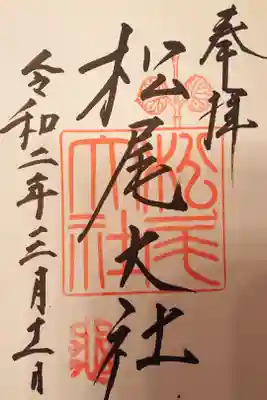 奉拝
松尾大社
松尾大社
令和二年三月十一日